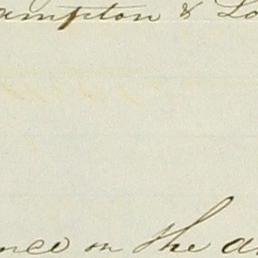 ampton & Lo
ence on the a